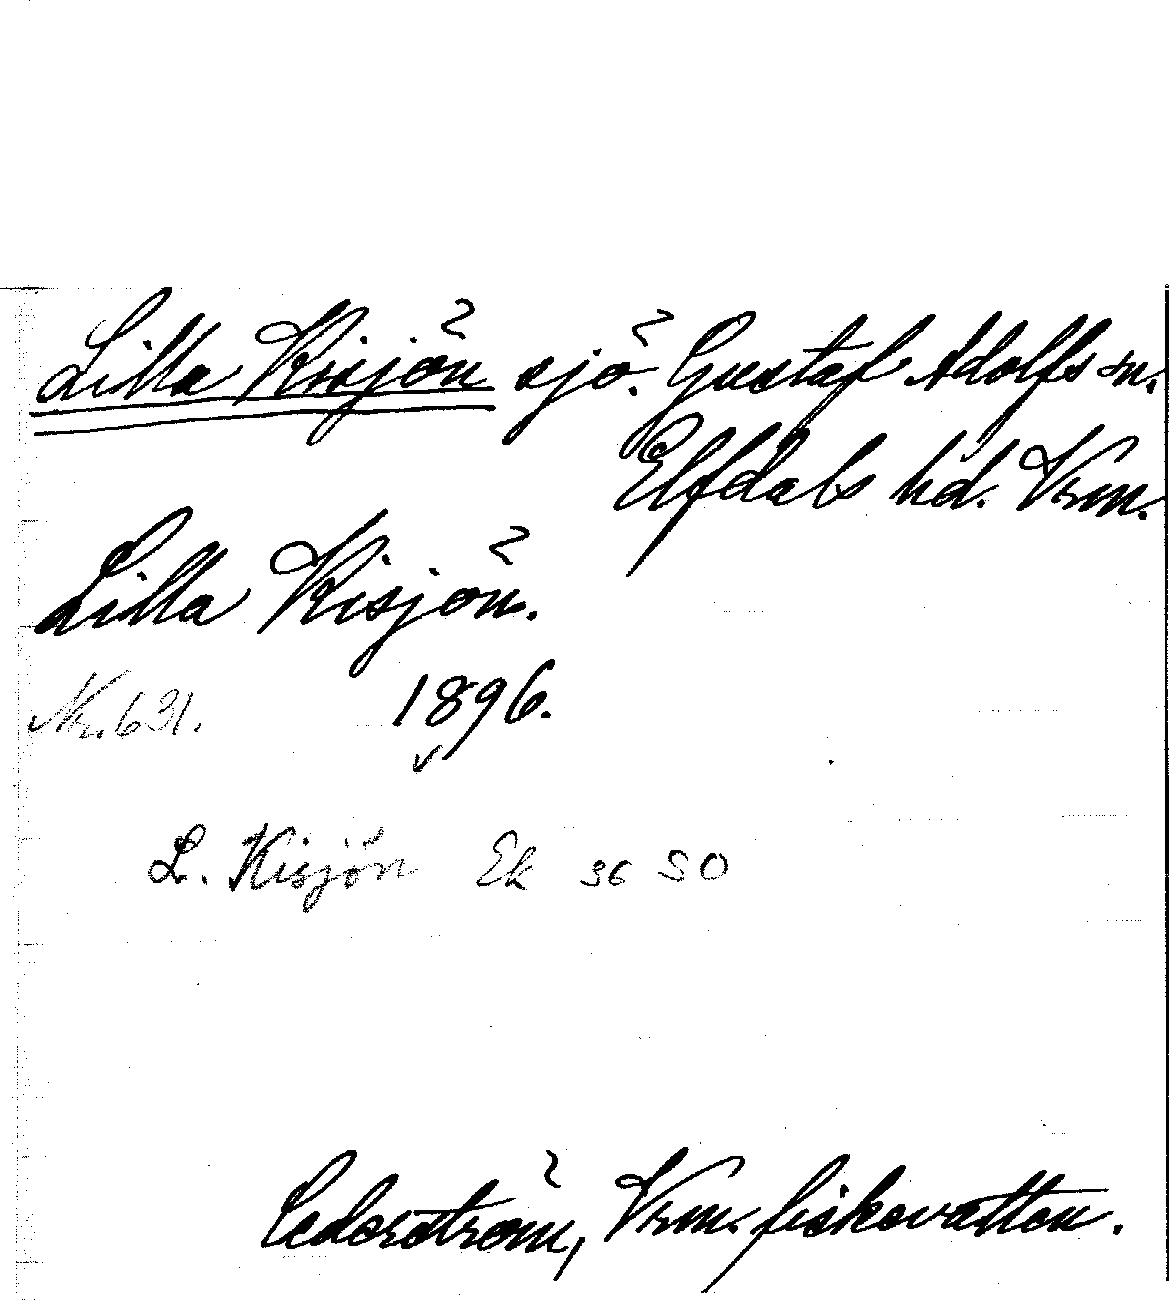 Lilla Kisjön sjö. Gustaf Adolfs sn.
Elfdals hd. Vrm.
Lilla Kisjön.
Nr. 631. 1896.
L. Kisjön Ek 36 SO
Cederström, Vrm. fiskevatten.